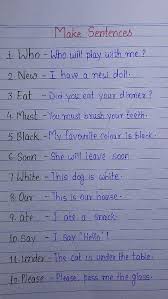 Make Sentences
1. Who - Who will play with me?
2. New - I have a new doll.
3. Eat - Did you eat your dinner?
4. Must - You must brush your teeth.
5. Black - My favourite colour is black.
6. Soon - She will leave soon
7. White - This dog is white.
8. Our - This is our house.
9. ate - I ate a snack.
10. Say - I say "Hello"!
11. Under - The cat is under the table.
12. Please - Please, pass me the glass.